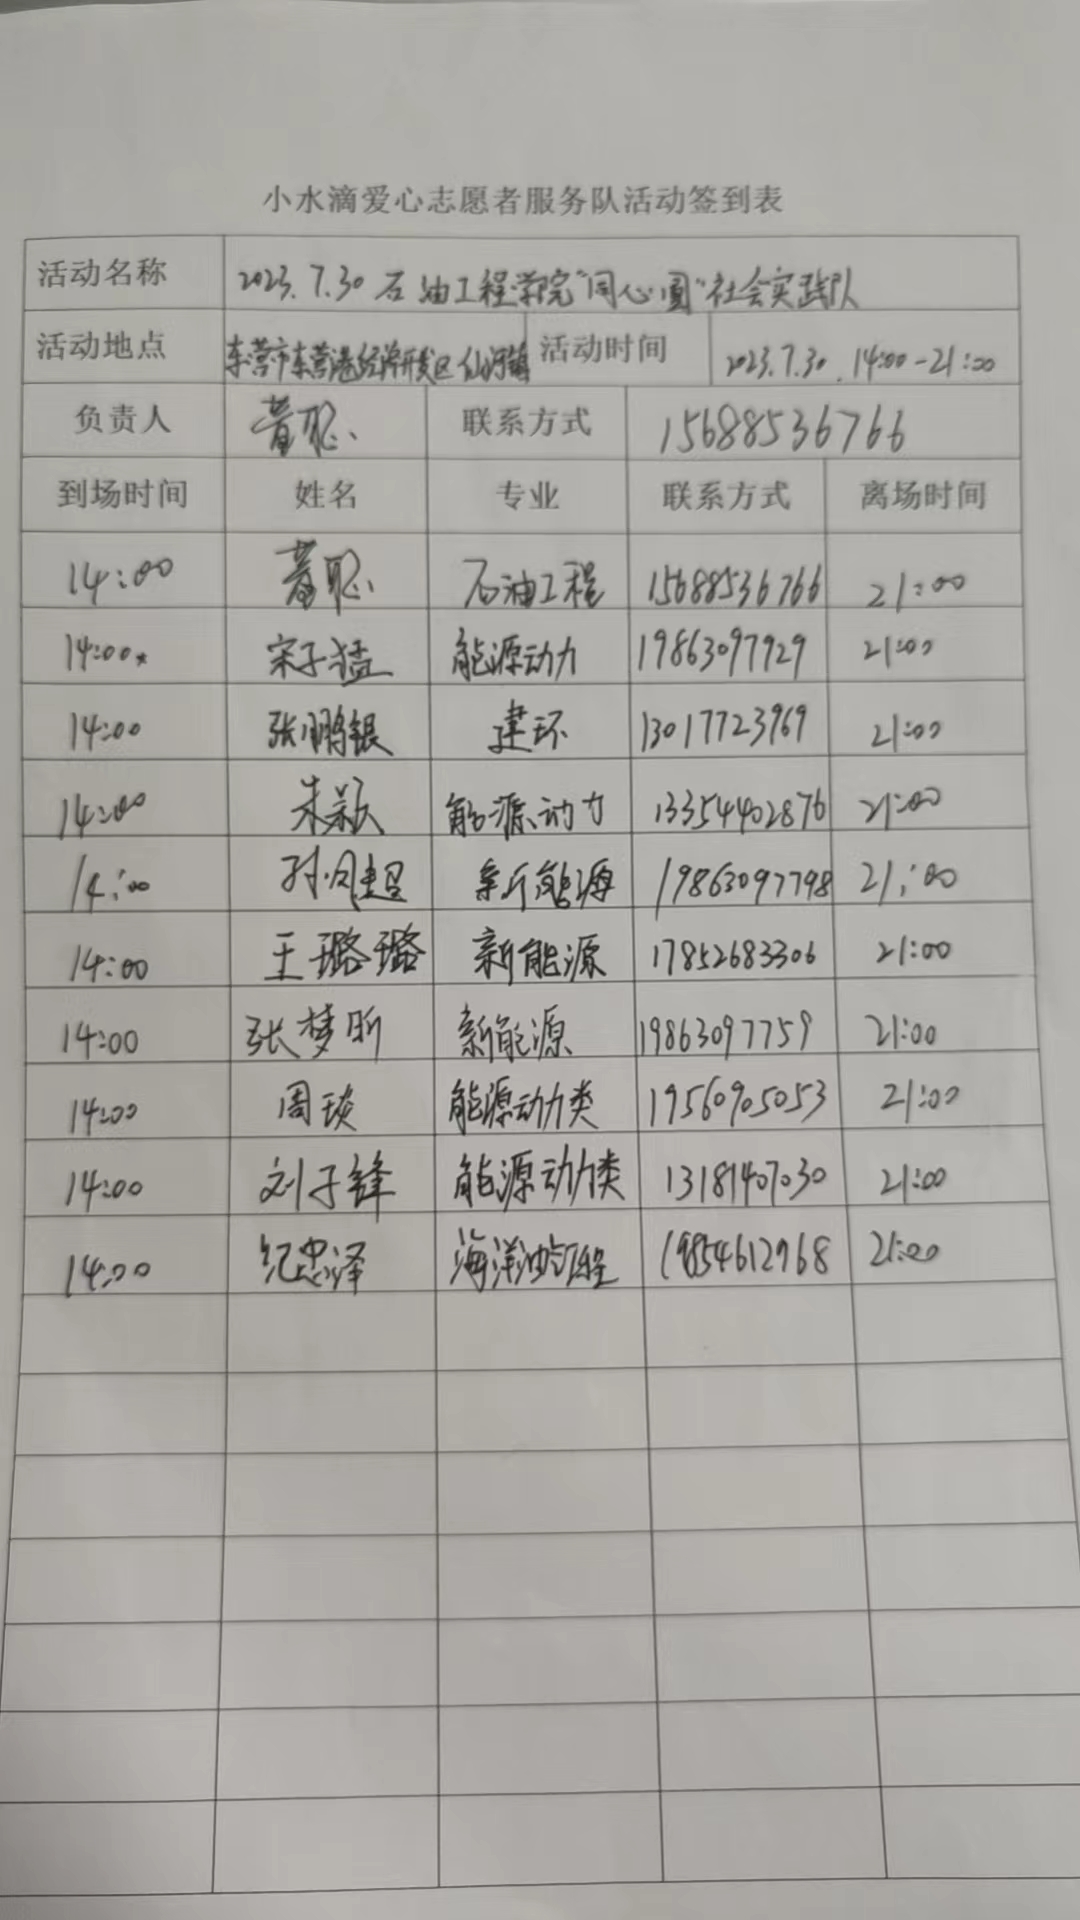 小水滴爱心志愿者服务队活动签到表
活动名称 2023.7.30 石油工程学院“同心圆”社会实践队
活动地点 东营市东营港经济开发区仙河镇 活动时间 2023.7.30. 14:00-21:00
负责人 董聪 联系方式 15688536766
到场时间 姓名 专业 联系方式 离场时间
14:00 董聪 石油工程 15688536766 21:00
14:00 宋子猛 能源动力 19863097929 21:00
14:00 张鹏银 建环 13017723969 21:00
14:00 朱颖 能源动力 13354402876 21:00
14:00 孙凤超 新能源 19863097798 21:00
14:00 王璐璐 新能源 17852683306 21:00
14:00 张梦昕 新能源 19863097759 21:00
14:00 周琰 能源动力类 19560905053 21:00
14:00 刘子锋 能源动力类 13181407030 21:00
14:00 纪忠泽 海洋油气工程 19854612968 21:00